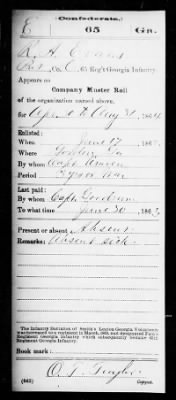 (Confederate.)
E 65 Ga.
R. H. Evans
Pvt, Co. E, 65 Reg't Georgia Infantry.
Appears on
Company Muster Roll
of the organization named above,
for Apr 30 to Aug 31, 1864.
Enlisted:
When June 17, 186
Where
By whom Capt.
Period 3 yrs or war
Last paid:
By whom Capt.
To what time June 30, 186
Present or absent Absent
Remarks: Absent sick
The Infantry Battalion of Smith's Legion Georgia Volunteers was increased to a regiment in March, 1863, and designated Regiment Georgia Infantry which subsequently became 65th Regiment Georgia Infantry.
Book mark:
(642) Copyist.